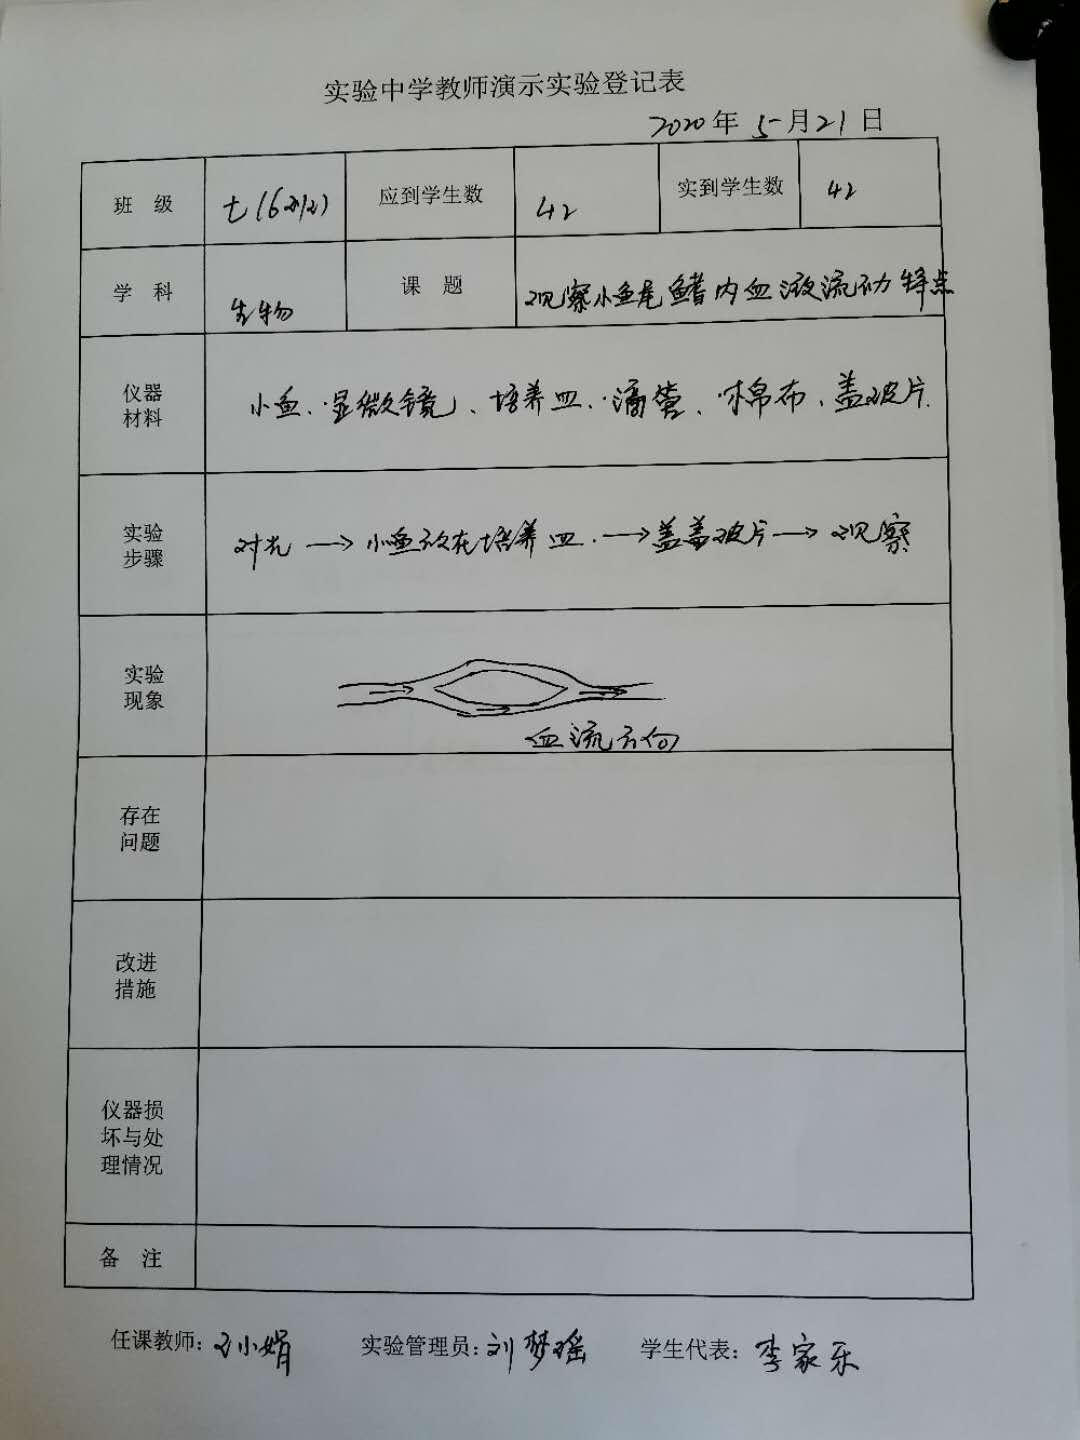 实验中学教师演示实验登记表
2020年5月21日
班 级 七(6班) 应到学生数 42 实到学生数 42
学 科 生物 课 题 观察小鱼尾鳍内血液流动特点
仪器
材料
小鱼、显微镜、培养皿、滴管、棉布、盖玻片.
实验
步骤
对光→小鱼放在培养皿→盖盖玻片→观察
实验
现象
血流方向
存在
问题
改进
措施
仪器损
坏与处
理情况
备 注
任课教师:王小娟 实验管理员:刘梦瑶 学生代表:李家乐